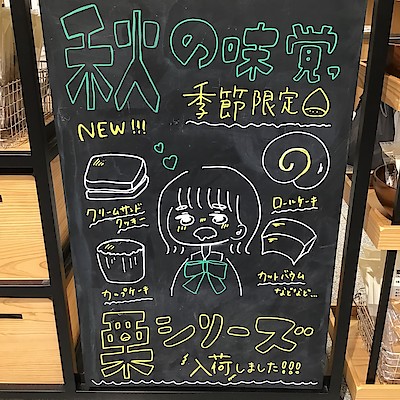 秋の味覚、
季節限定
NEW!!!
クリームサンド
クッキー
ロールケーキ
カップケーキ
カットバウム
などなど...
栗シリーズ
入荷しました!!!